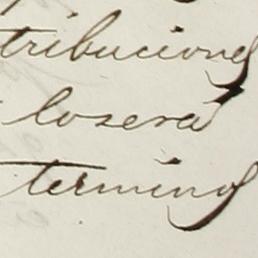 tribuciones
lo será
termino